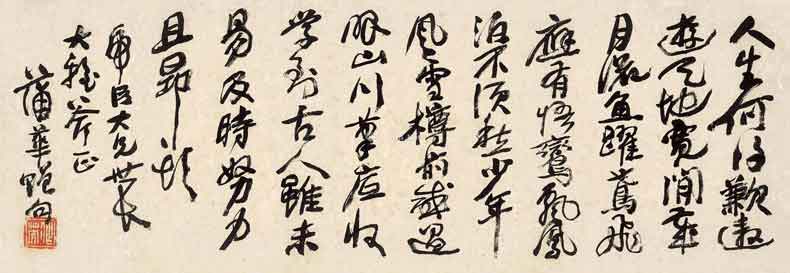 人生何歎遨
遊天地寬閒歲
月魚躍鳶飛
應有悟鸞飄鳳
泊不須愁少年
風雪樽前感過
眼山川筆底收
學到古人雖未
易及時努力
且昂頭
虎臣大兄世長
大雅斧正
蒲華贈句